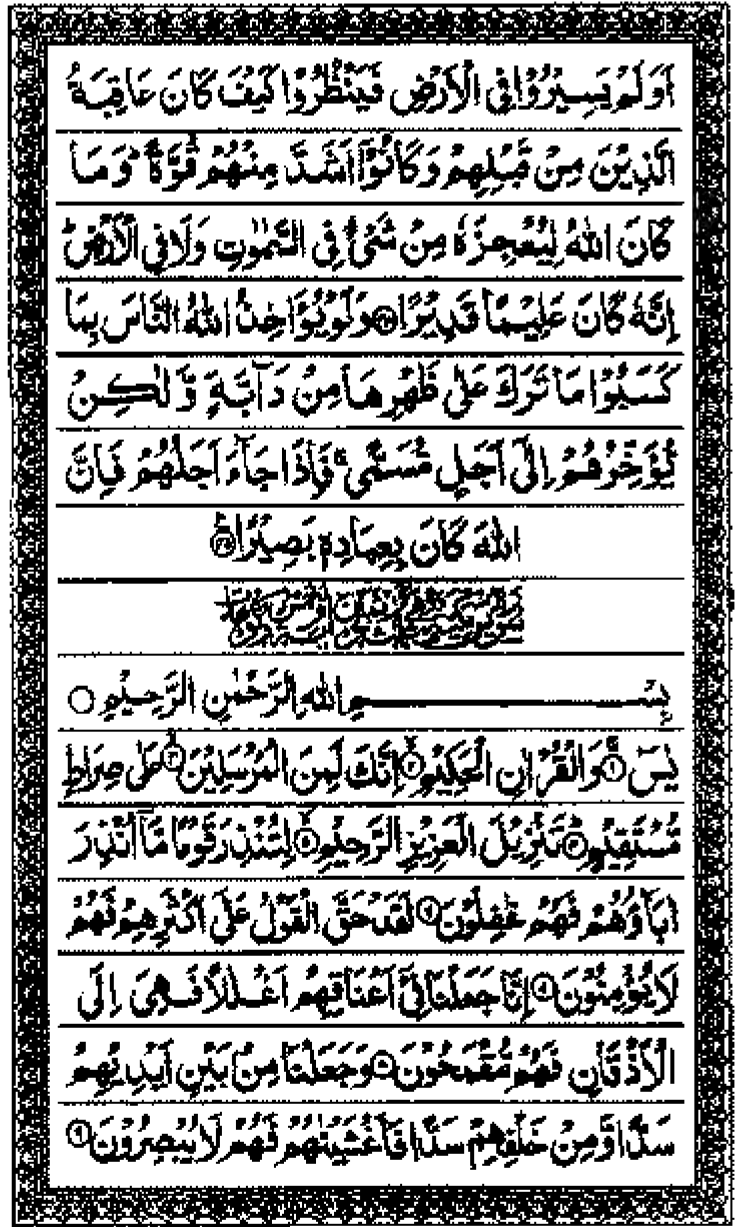 اَوَلَمْ يَسِيْرُوْا فِي الْاَرْضِ فَيَنْظُرُوْا كَيْفَ كَانَ عَاقِبَةُ
الَّذِيْنَ مِنْ قَبْلِهِمْ وَكَانُوْۤا اَشَدَّ مِنْهُمْ قُوَّةً ؕ وَمَا
كَانَ اللّٰهُ لِيُعْجِزَهٗ مِنْ شَيْءٍ فِي السَّمٰوٰتِ وَلَا فِي الْاَرْضِ ؕ
اِنَّهٗ كَانَ عَلِيْمًا قَدِيْرًا ۝۴۴ وَلَوْ يُؤَاخِذُ اللّٰهُ النَّاسَ بِمَا
كَسَبُوْا مَا تَرَكَ عَلٰى ظَهْرِهَا مِنْ دَآبَّةٍ وَّلٰكِنْ
يُّؤَخِّرُهُمْ اِلٰۤى اَجَلٍ مُّسَمًّى ۚ فَاِذَا جَآءَ اَجَلُهُمْ فَاِنَّ
اللّٰهَ كَانَ بِعِبَادِهٖ بَصِيْرًا ۝۴۵
بِسْمِ اللّٰهِ الرَّحْمٰنِ الرَّحِيْمِ ○
يٰسٓ ۝۱ وَالْقُرْاٰنِ الْحَكِيْمِ ۝۲ اِنَّكَ لَمِنَ الْمُرْسَلِيْنَ ۝۳ عَلٰى صِرَاطٍ
مُّسْتَقِيْمٍ ۝۴ تَنْزِيْلَ الْعَزِيْزِ الرَّحِيْمِ ۝۵ لِتُنْذِرَ قَوْمًا مَّاۤ اُنْذِرَ
اٰبَآؤُهُمْ فَهُمْ غٰفِلُوْنَ ۝۶ لَقَدْ حَقَّ الْقَوْلُ عَلٰۤى اَكْثَرِهِمْ فَهُمْ
لَا يُؤْمِنُوْنَ ۝۷ اِنَّا جَعَلْنَا فِيْۤ اَعْنَاقِهِمْ اَغْلٰلًا فَهِيَ اِلَى
الْاَذْقَانِ فَهُمْ مُّقْمَحُوْنَ ۝۸ وَجَعَلْنَا مِنْۢ بَيْنِ اَيْدِيْهِمْ
سَدًّا وَّمِنْ خَلْفِهِمْ سَدًّا فَاَغْشَيْنٰهُمْ فَهُمْ لَا يُبْصِرُوْنَ ۝۹